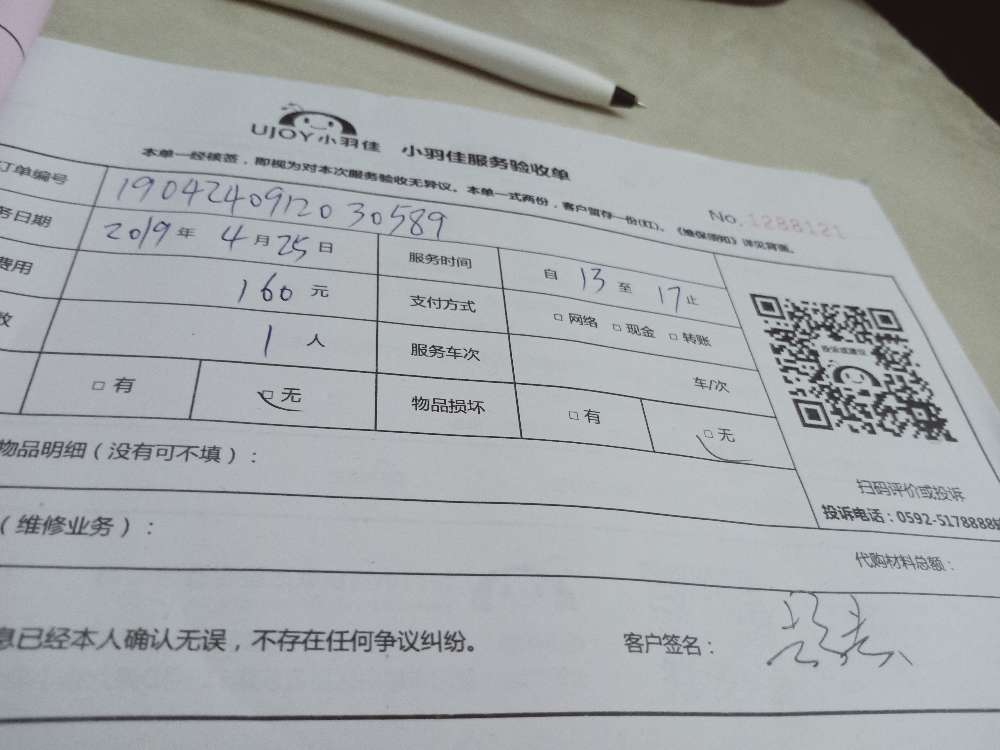 UJOY小羽佳 小羽佳服务验收单
本单一经核签，即视为对本次服务验收无异议。本单一式两份，客户留存一份(红)。《维保须知》详见背面。
No. 1288121
订单编号 190424091203058​9
务日期 2019年 4月25日 服务时间 自 13 至 17 止
费用 160元 支付方式 □网络 □现金 □转账
数 1人 服务车次 车/次
□有 □无 物品损坏 □有 □无
投诉或建议
扫码评价或投诉
投诉电话：0592-5178888
物品明细（没有可不填）：
（维修业务）：
代购材料总额：
息已经本人确认无误，不存在任何争议纠纷。 客户签名：